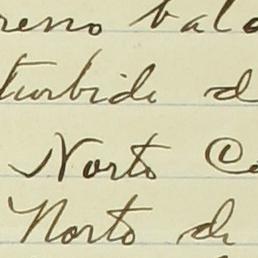 reno bald
turbide d
Norte Ca
Norte de